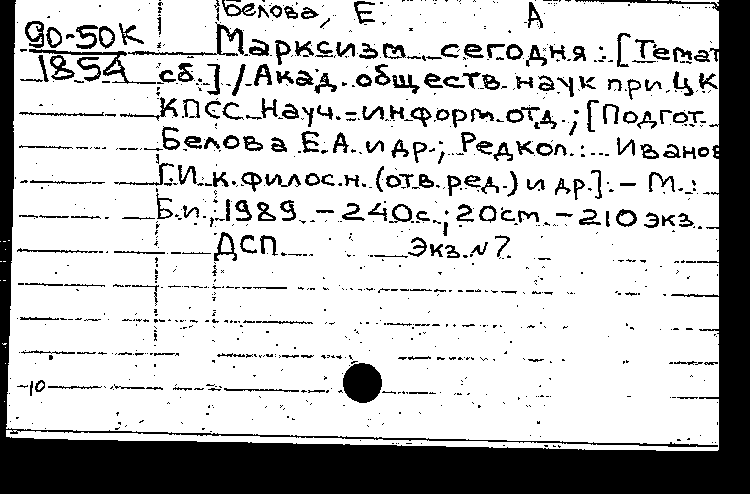 Белова, Е А
90-50К
Марксизм сегодня : [Темат
1854
сб.] / Акад. обществ. наук при ЦК
КПСС. Науч.-информ. отд. ; [Подгот.
Белова Е.А. и др.; Редкол.: Иванов
Г.И. к.филос.н. (отв. ред.) и др.]. - М. :
Б.и., 1989. - 240с. ; 20см. - 210 экз.
ДСП. Экз. № 7.
10